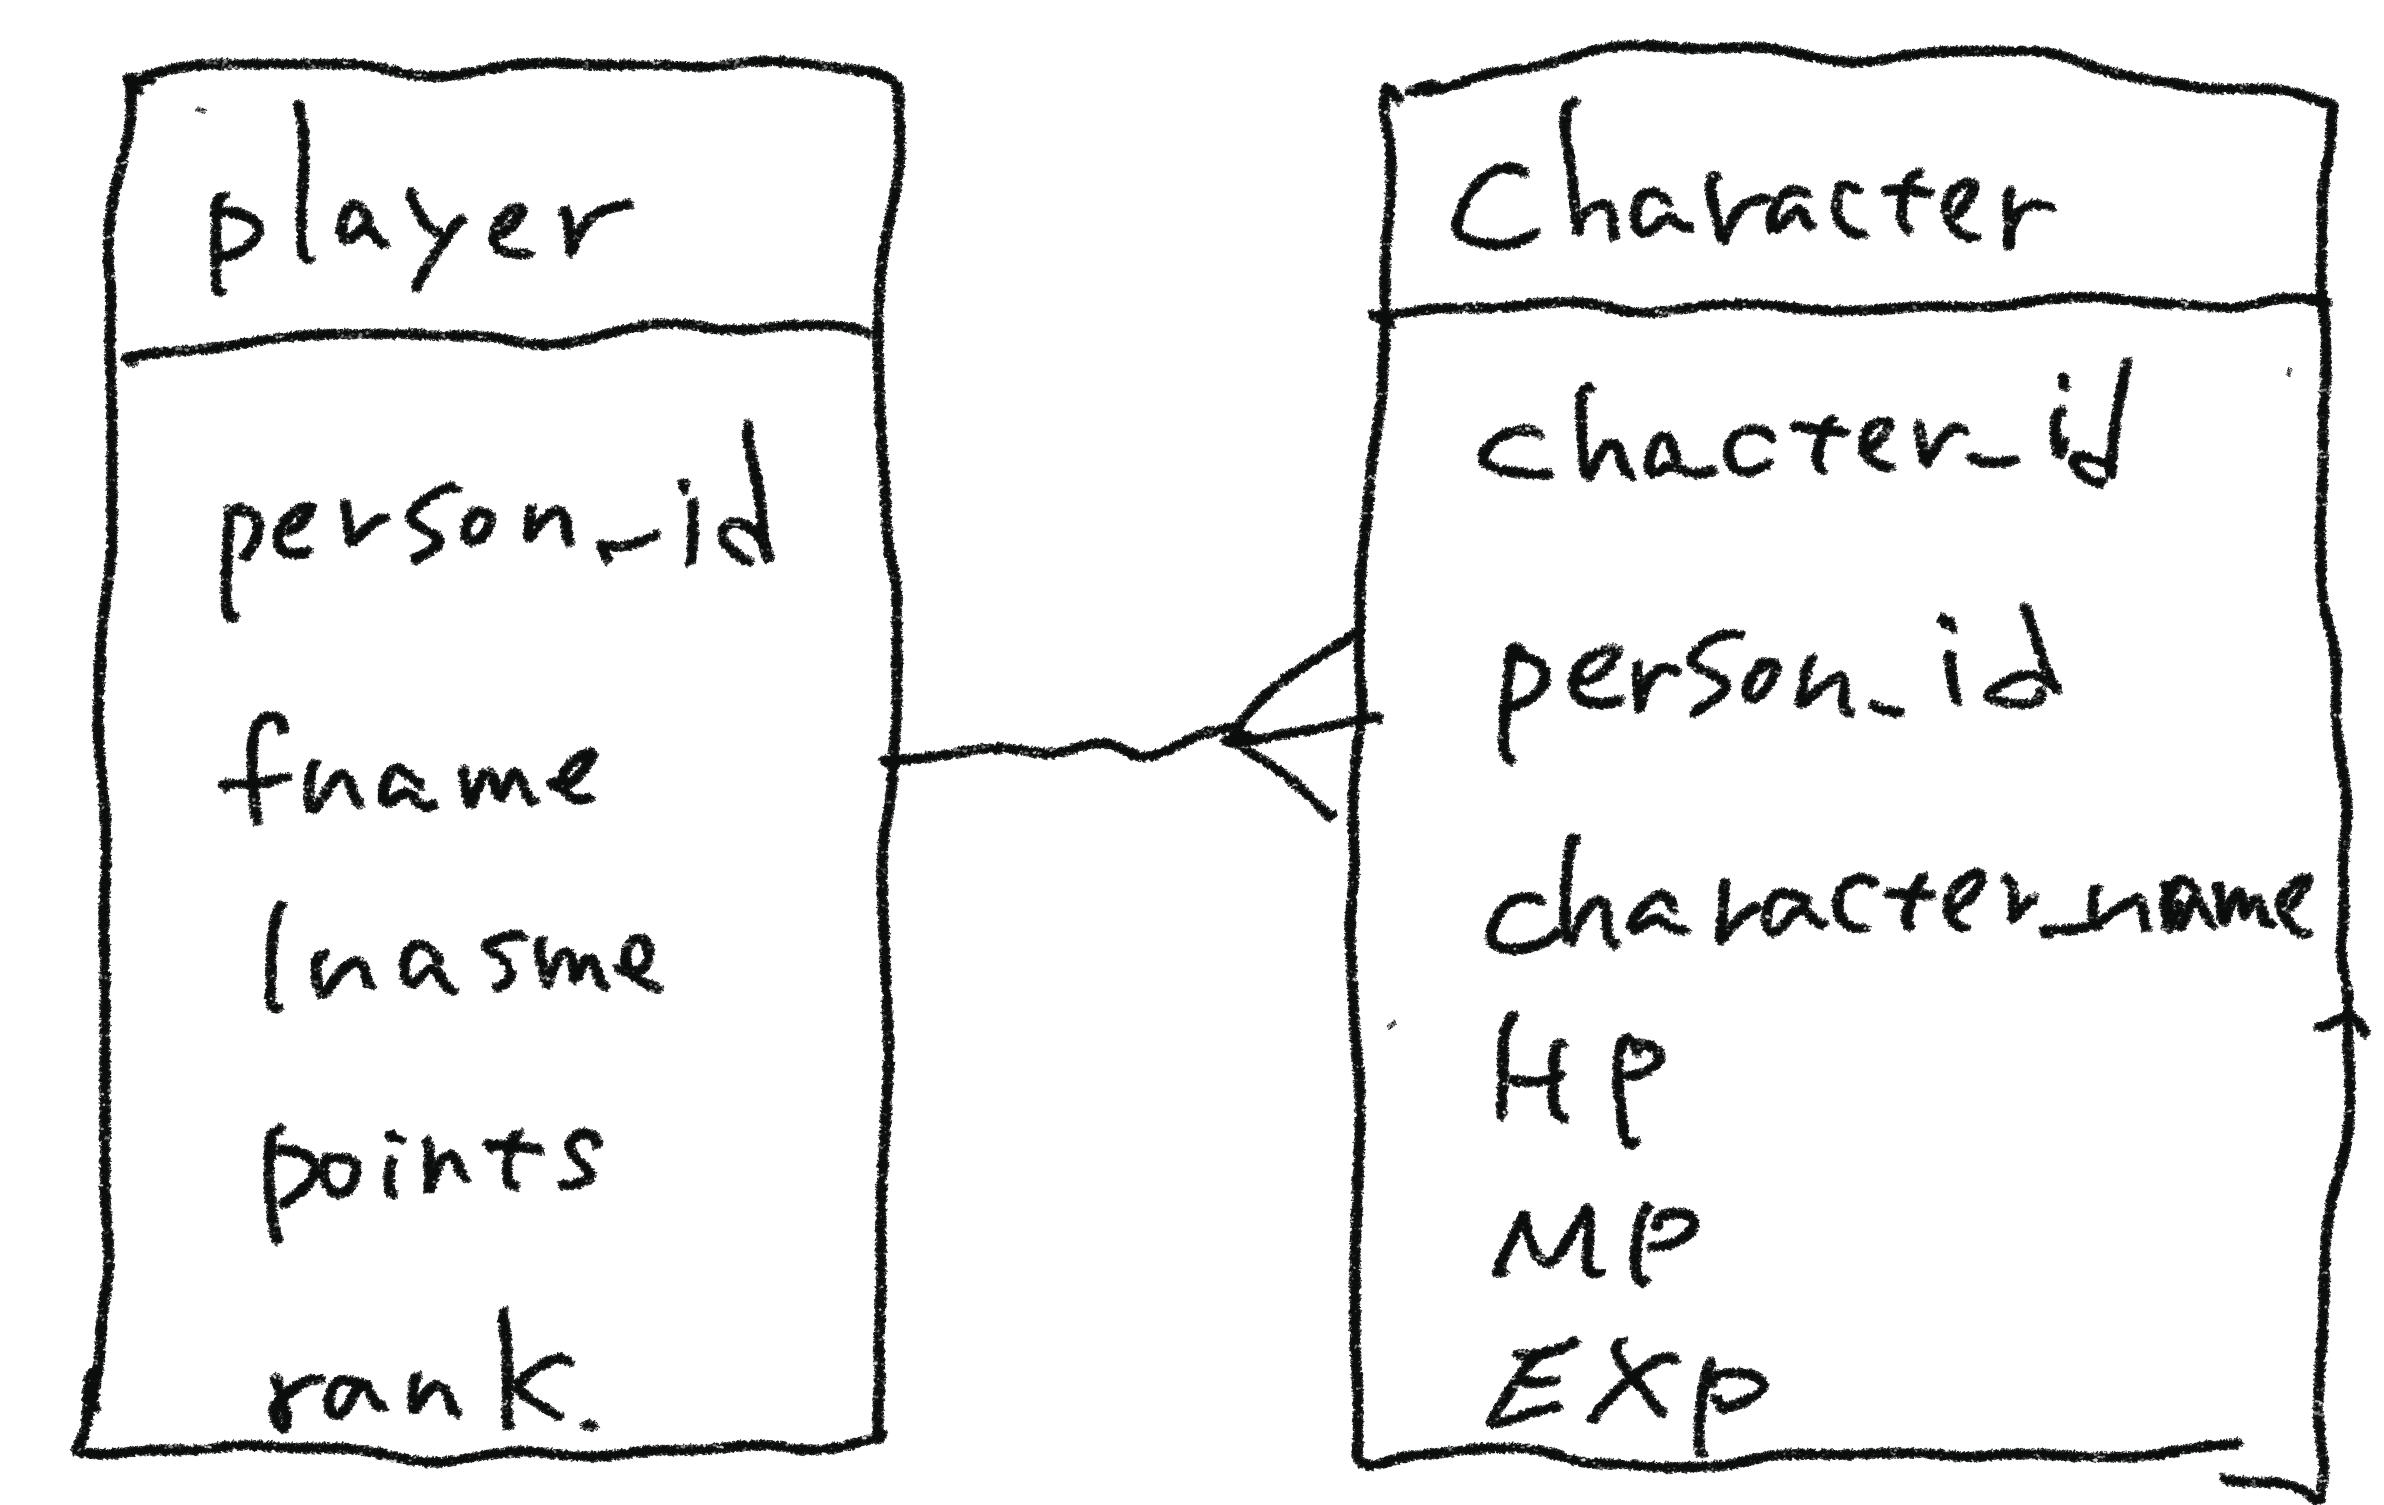 player
person_id
fname
lnasme
points
rank.
Character
chacter_id
person_id
character_name
HP
MP
EXP